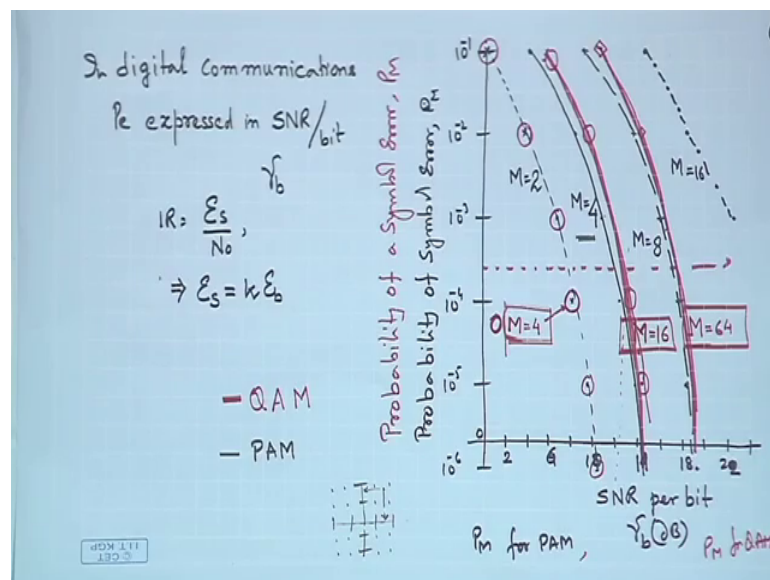 In digital communications
Pe expressed in SNR/bit
γb
IR = Es/No,
⇒ Es = kEb
QAM
PAM
Probability of a Symbol Error, PM
Probability of Symbol Error, PM
10⁻¹
10⁻²
10⁻³
10⁻⁴
10⁻⁵
10⁻⁶
M=2
M=4
M=8
M=16
M=4
M=16
M=64
0
2
6
18.
SNR per bit
γb (dB)
PM for PAM,
PM for QAM
© CET
I.I.T. KGP